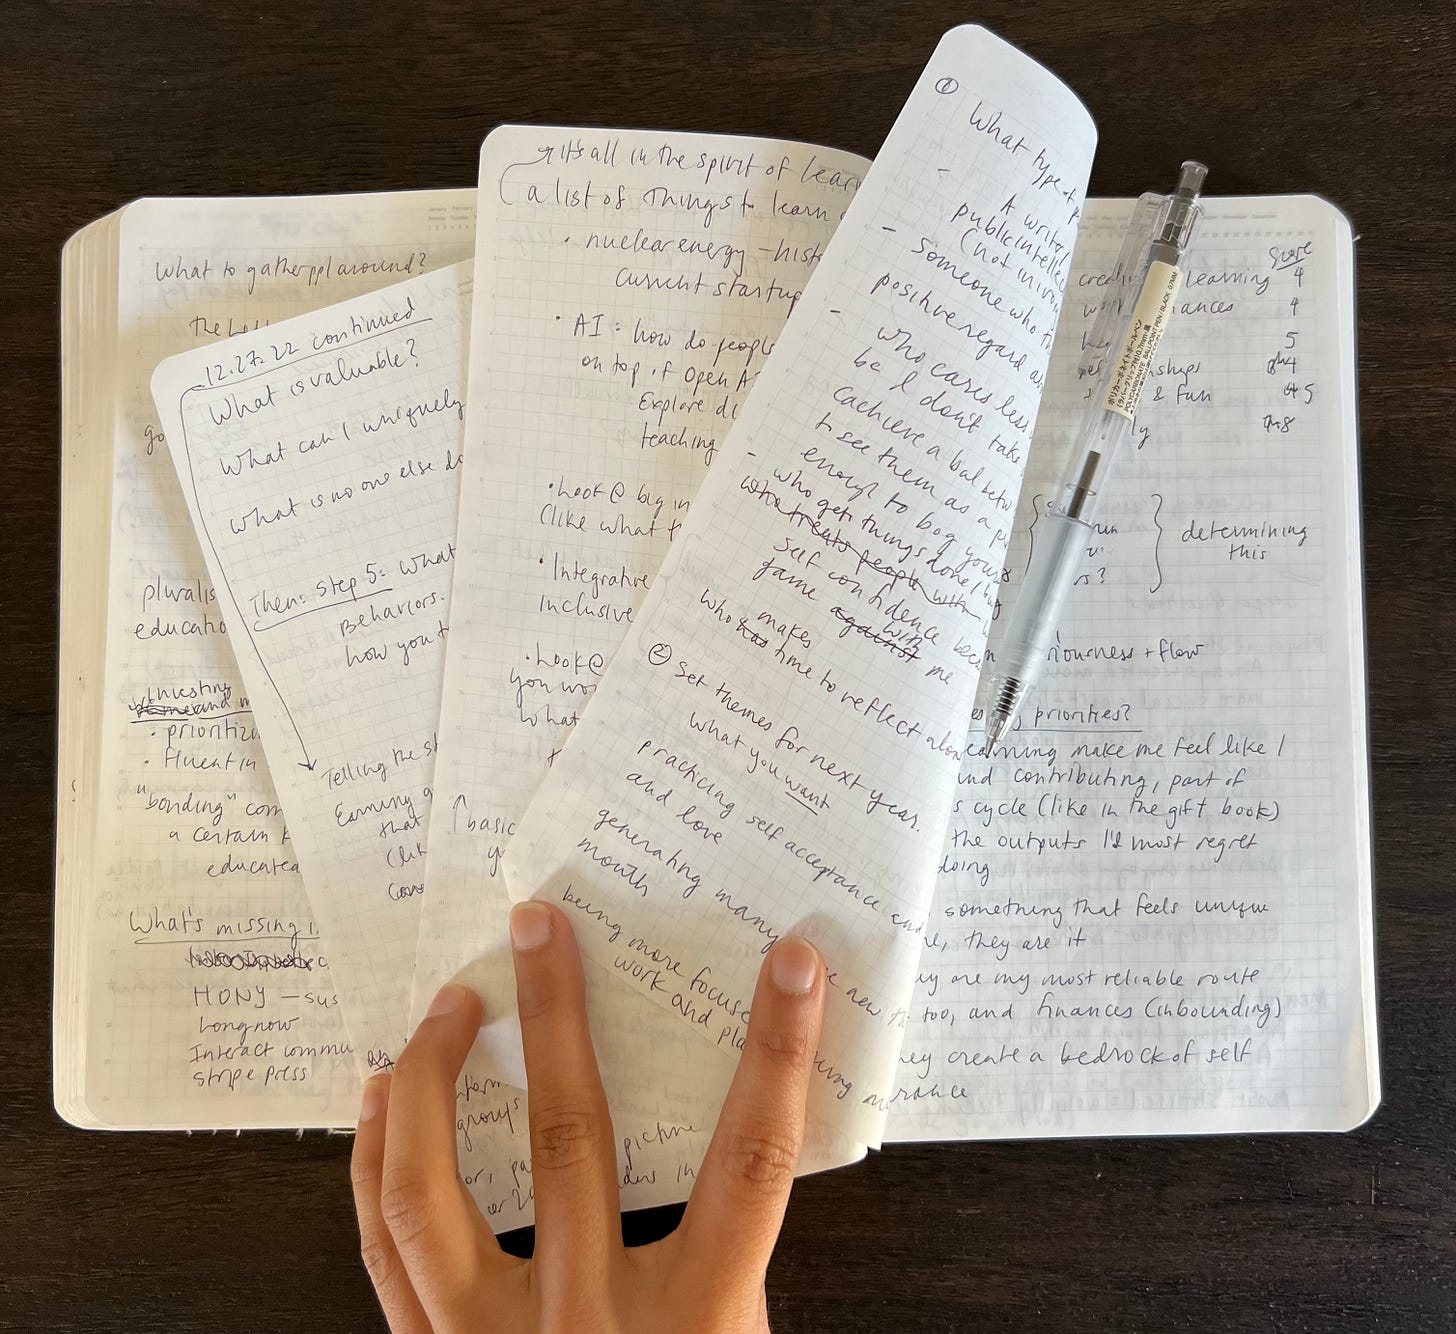 What to gather ppl around?
the
go
pluralis
educatio
Investing
and
prioritizi
fluent in
"bonding" com
a certain
educated
What's missing
HONY – sus
Longnow
Interact commu
Stripe press
12.27.22 continued
What is valuable?
What can I uniquely
What is no one else do
Then: Step 5: What
Behaviors.
how you
Telling the st
Earning a
that
(lik
it's all in the spirit of lear
a list of things to learn
• nuclear energy – hist
current startup
• AI: how do people
on top of Open A
Explore di
teaching
• Look @ big in
(like what t
• Integrative
Inclusive
• Look @
you wo
what
↑ basic
y
groups
picture
or, pa
in
① What type of p
- A writer
public intelle
(not in ivor
- Someone who t
positive regard
- who cares less
be I don't take
(achieve a bal betw
to see them as a p
enough to bog your
- who gets things done / but
who treats people with
self confidence beca
fame against with me
makes
who has time to reflect alon
② Set themes for next year.
What you want
practicing self acceptance and
and love
generating many
month
new
being more focuse
work and pla
Score
creati learning 4
wor ances 4
5
rel ships 4
& fun 5
ly 8
determining
this
iousness + flow
priorities?
earning make me feel like I
and contributing, part of
s cycle (like in the gift book)
the outputs I'd most regret
doing
something that feels unique
re, they are it
ey are my most reliable route
too, and finances (inbounding)
hey create a bedrock of self
ポリカーボネイトボールペン
POLYCARBONATE BALLPOINT PEN / BLACK 0.7MM